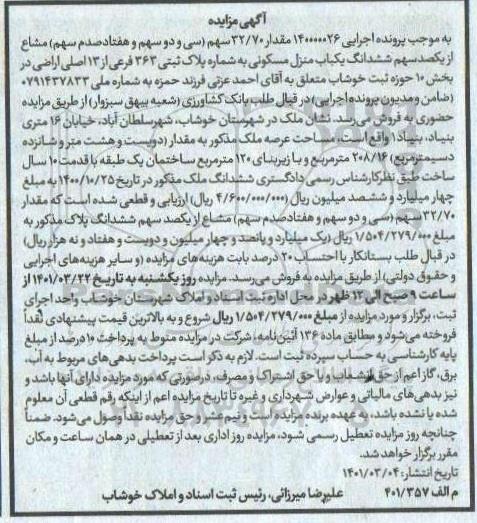 آگهی مزایده
به موجب پرونده اجرایی ۱۴۰۰۰۰۰۲۶ مقدار ۳۲/۷۰ سهم (سی و دو سهم و هفتادصدم سهم) مشاع
از یکصدسهم ششدانگ یکباب منزل مسکونی به شماره پلاک ثبتی ۳۶۳ فرعی از ۱۳ اصلی اراضی در
بخش ۱۰ حوزه ثبت خوشاب متعلق به آقای احمد عزتی فرزند حمزه به شماره ملی ۰۷۹۱۴۳۷۸۳۳
(ضامن و مدیون پرونده اجرایی) در قبال طلب بانک کشاورزی (شعبه بیهق سبزوار) از طریق مزایده
حضوری به فروش می‌رسد. نشان ملک در شهرستان خوشاب، شهر سلطان آباد، خیابان ۱۶ متری
بنیاد، بنیاد۱ واقع است، مساحت عرصه ملک مذکور به مقدار (دویست و هشت متر و شانزده
دسیمترمربع) ۲۰۸/۱۶ مترمربع و با زیربنای ۱۲۰ مترمربع ساختمان یک طبقه با قدمت ۱۰ سال
ساخت طبق نظر کارشناس رسمی دادگستری ششدانگ ملک مذکور در تاریخ ۱۴۰۰/۱۰/۲۵ به مبلغ
چهار میلیارد و ششصد میلیون ریال (۴/۶۰۰/۰۰۰/۰۰۰ ریال) ارزیابی و قطعی شده است که مقدار
۳۲/۷۰ سهم (سی و دو سهم و هفتادصدم سهم) مشاع از یکصد سهم ششدانگ پلاک مذکور به
مبلغ ۱/۵۰۴/۲۷۹/۰۰۰ ریال (یک میلیارد و پانصد و چهار میلیون و دویست و هفتاد و نه هزار ریال)
در قبال طلب بستانکار با احتساب ۲۰ درصد بابت هزینه‌های مزایده (و سایر هزینه‌های اجرایی
و حقوق دولتی) از طریق مزایده به فروش می‌رسد. مزایده روز یکشنبه به تاریخ ۱۴۰۱/۰۳/۲۲ از
ساعت ۹ صبح الی ۱۲ ظهر در محل اداره ثبت اسناد و املاک شهرستان خوشاب واحد اجرای
ثبت، برگزار و مورد مزایده از مبلغ ۱/۵۰۴/۲۷۹/۰۰۰ ریال شروع و به بالاترین قیمت پیشنهادی نقداً
فروخته می‌شود و مطابق ماده ۱۳۶ آئین‌نامه، شرکت در مزایده منوط به پرداخت ۱۰درصد از مبلغ
پایه کارشناسی به حساب سپرده ثبت است. لازم به ذکر است پرداخت بدهی‌های مربوط به آب،
برق، گاز اعم از حق انشعاب و یا حق اشتراک و مصرف، درصورتی که مورد مزایده دارای آنها باشد و
نیز بدهی‌های مالیاتی و عوارض شهرداری و غیره تا تاریخ مزایده اعم از اینکه رقم قطعی آن معلوم
شده یا نشده باشد، به عهده برنده مزایده است و نیم عشر و حق مزایده نقداً وصول می‌شود. ضمناً
چنانچه روز مزایده تعطیل رسمی شود، مزایده روز اداری بعد از تعطیلی در همان ساعت و مکان
مقرر برگزار خواهد شد.
تاریخ انتشار: ۱۴۰۱/۰۳/۰۴
م الف ۴۰۱/۳۵۷ علیرضا میرزائی، رئیس ثبت اسناد و املاک خوشاب